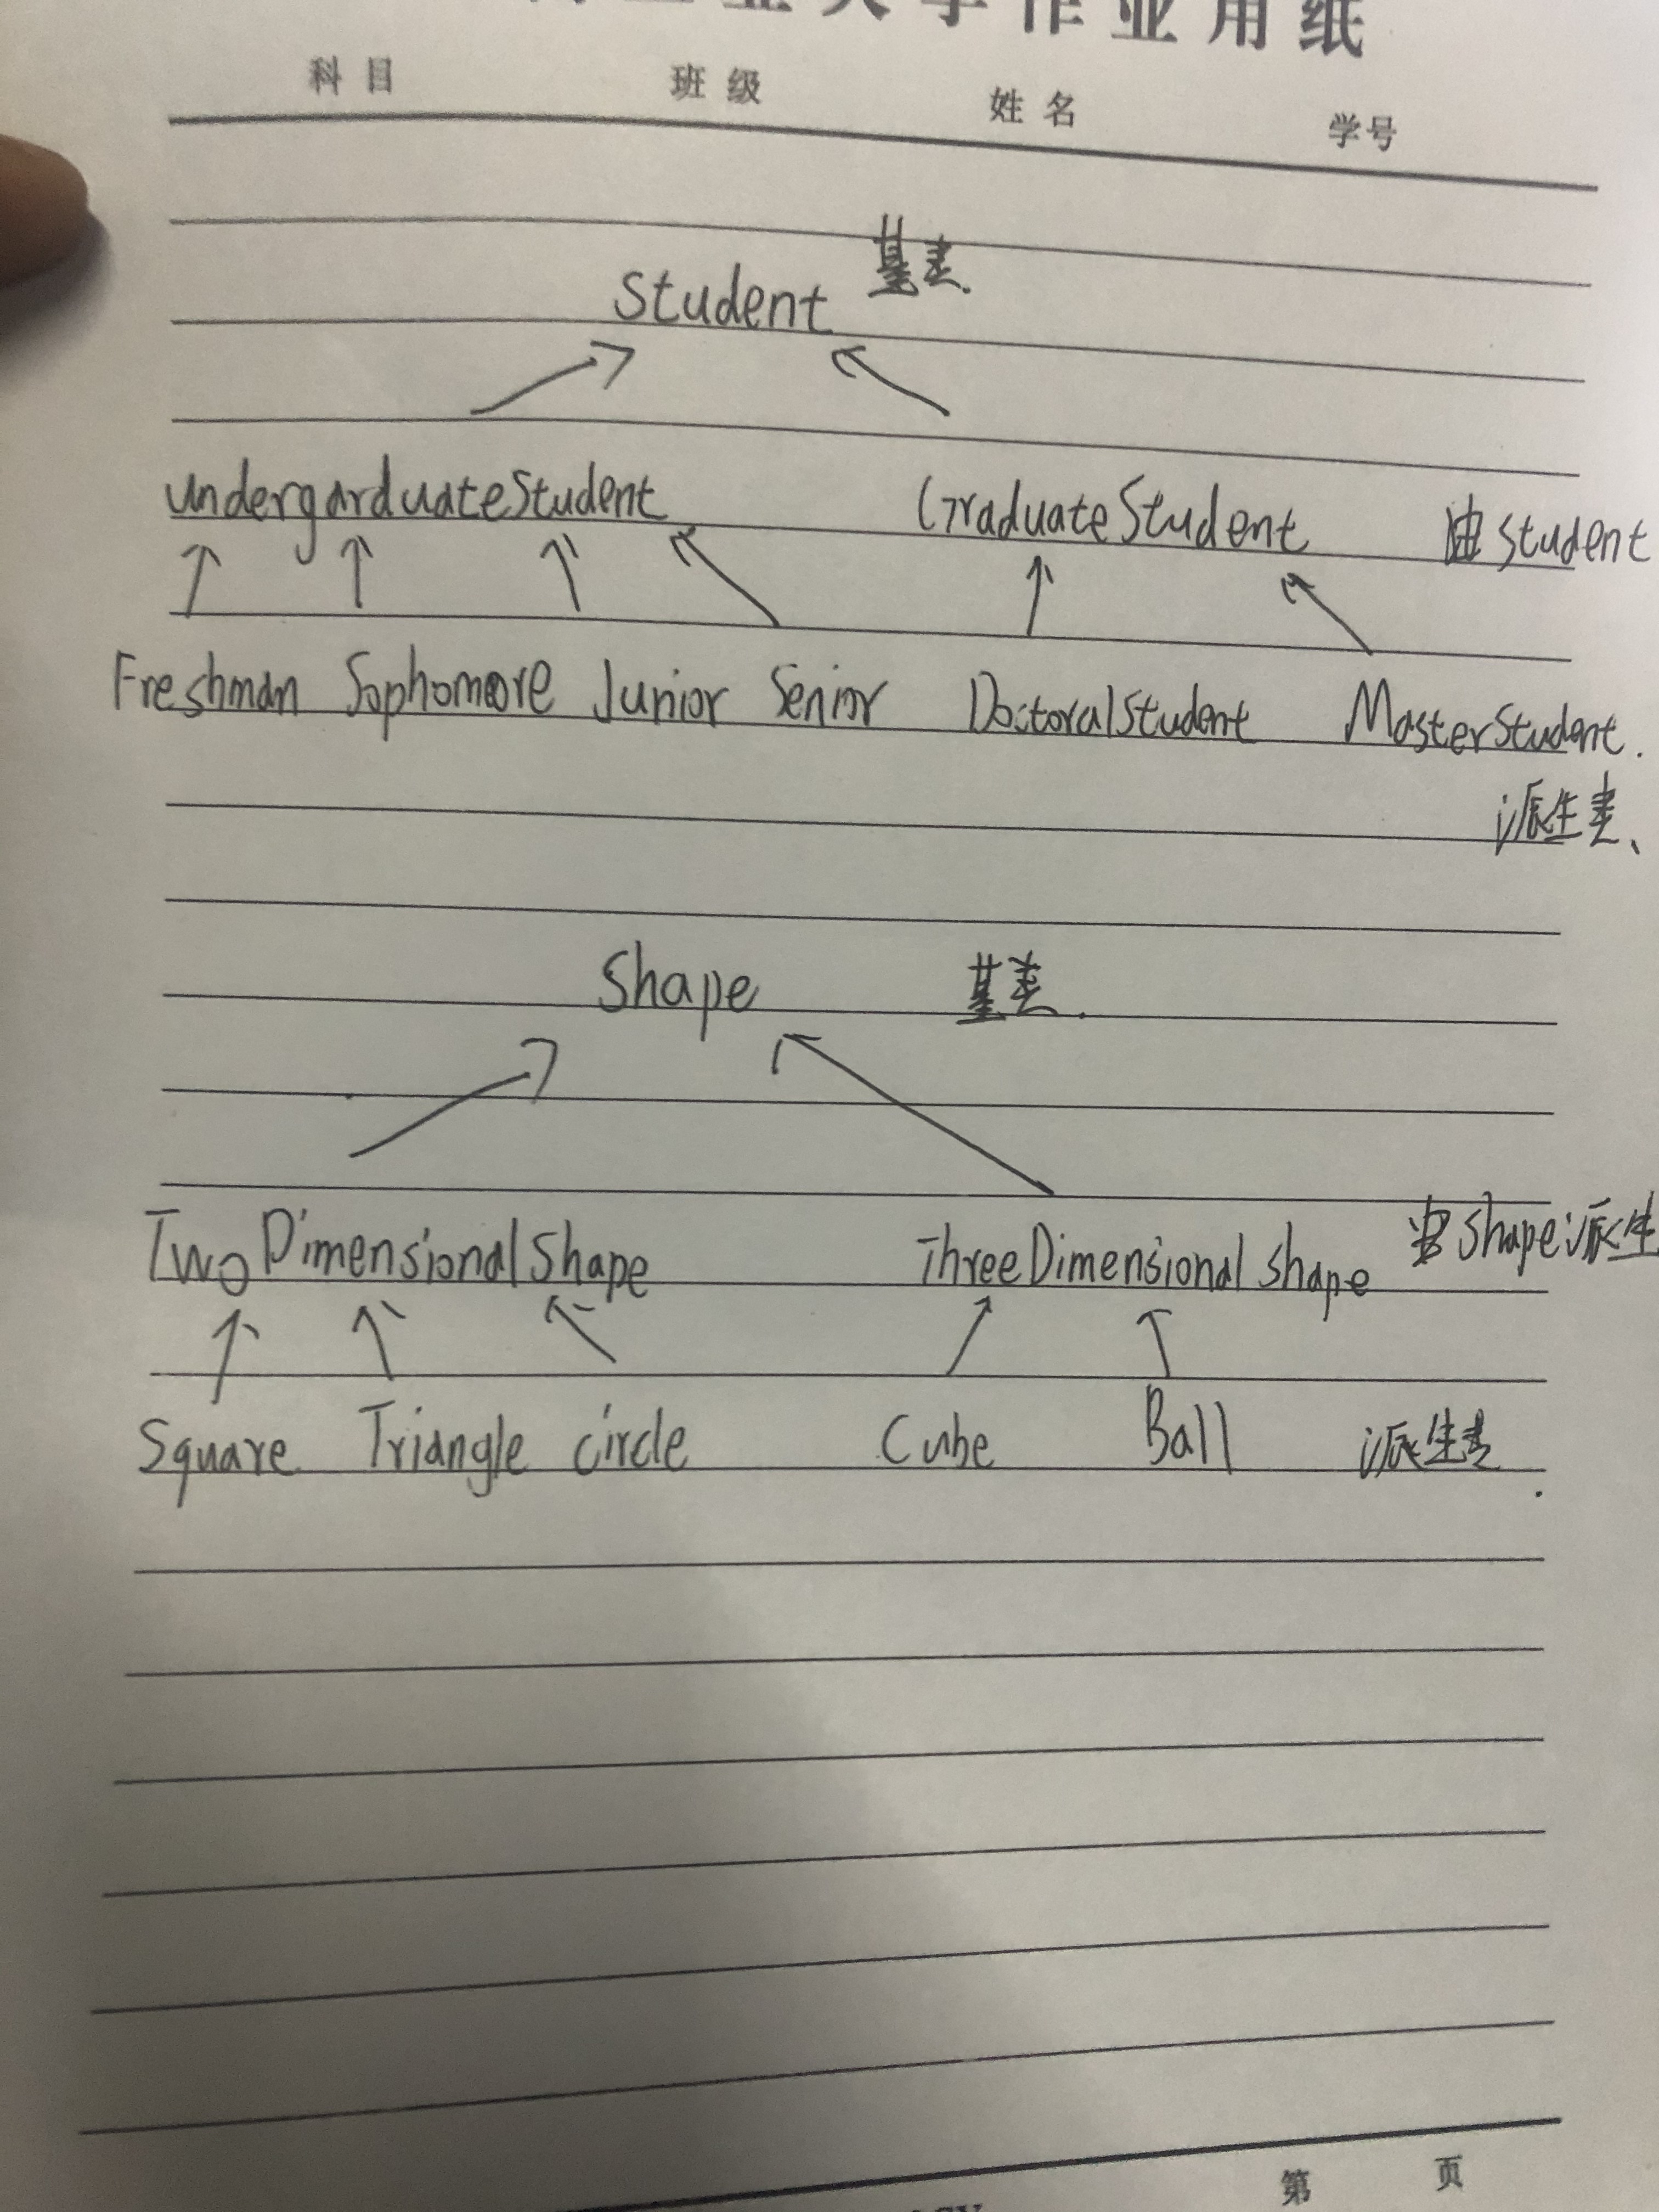 大学作业用纸
科目 班级 姓名 学号
Student 基类.
undergarduateStudent GraduateStudent 由 Student
Freshman Sophomore Junior Senior DoctoralStudent MasterStudent.
派生类、
Shape 基类.
TwoDimensionalShape ThreeDimensionalshape Shape派生
Square Triangle circle Cube Ball 派生类.
第 页